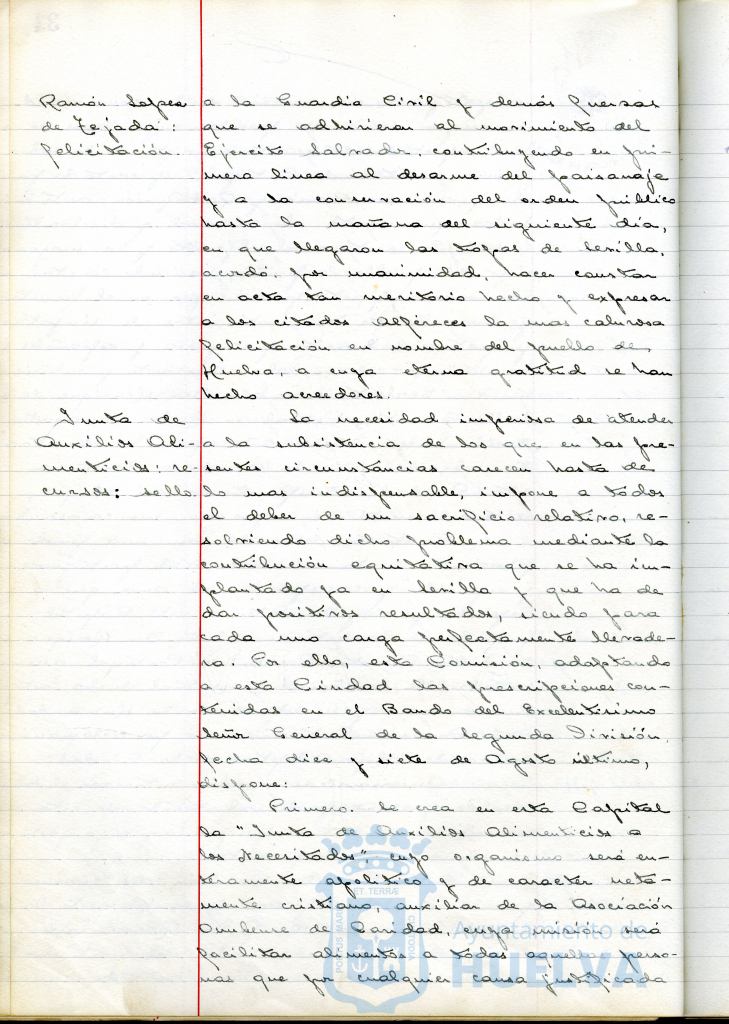 Ramón Lopez
de Tejada:
felicitación.
a la Guardia Civil y demás fuerzas
que se adhirieron al movimiento del
Ejército Salvador, contribuyendo en pri-
mera linea al desarme del paisanaje
y a la conservación del orden público
hasta la mañana del siguiente día,
en que llegaron las tropas de Sevilla,
acordó, por unanimidad, hacer constar
en acta tan meritorio hecho y expresar
a los citados Alféreces la mas calurosa
felicitación en nombre del pueblo de
Huelva, a cuya eterna gratitud se han
hecho acreedores.
Junta de
Auxilios Ali-
menticios: re-
cursos: sello.
La necesidad imperiosa de atender
a la subsistencia de los que en las pre-
sentes circunstancias carecen hasta de
lo mas indispensable, impone a todos
el deber de un sacrificio relativo, re-
solviendo dicho problema mediante la
contribución equitativa que se ha im-
plantado ya en Sevilla y que ha de
dar positivos resultados, siendo para
cada uno carga perfectamente llevade-
ra. Por ello, esta Comisión, adaptando
a esta Ciudad las prescripciones con-
tenidas en el Bando del Excelentísimo
Señor General de la Segunda División,
fecha diez y siete de Agosto último,
dispone:
Primero. Se crea en esta Capital
la "Junta de Auxilios Alimenticios a
los Necesitados" cuyo organismo será en-
teramente apolítico y de caracter neta-
mente cristiano, auxiliar de la Asociación
Onubense de Caridad, cuya misión será
facilitar alimentos a todas aquellas perso-
nas que por cualquier causa justificada
PORTUS MARIS ET TERRAE CUSTODIA
Ayuntamiento de
HUELVA